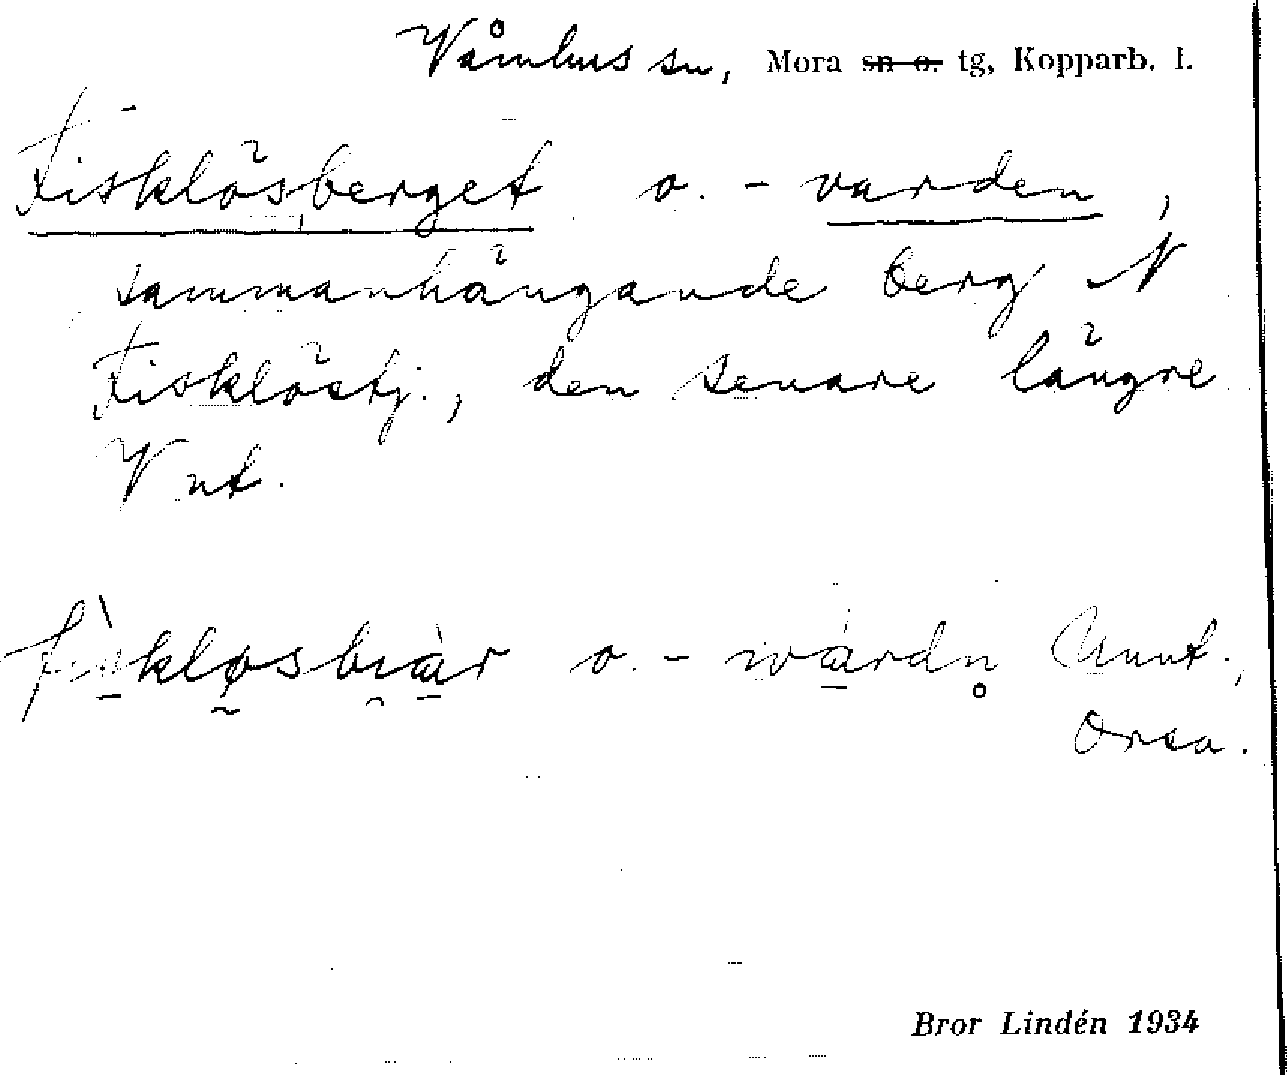 Våmhus sn, Mora ~~sn o.~~ tg, Kopparb. l.
Fisklösberget o. -varden,
sammanhängande berg N
Fisklöstj., den senare längre
V ut.
fìsklo̰sbi̯a̱r o. -wa̱rdn̥
Orsa.
Bror Lindén 1934